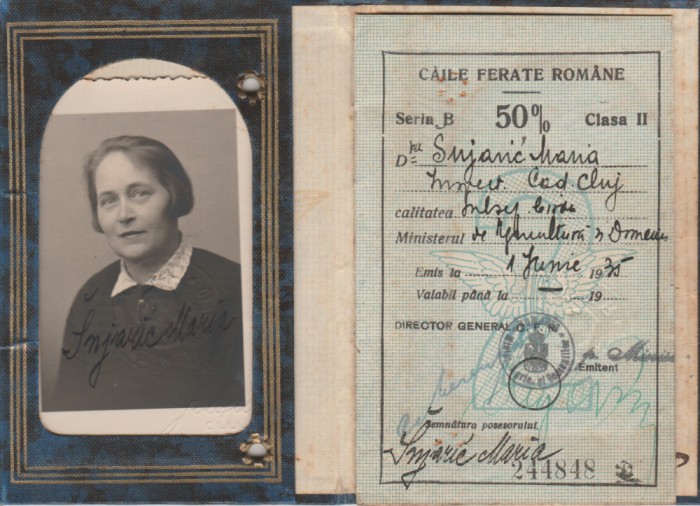 Šnjarić Maria
CĂILE FERATE ROMÂNE
Seria B 50% Clasa II
Dna Šnjarić Maria
Cad. Cluj
calitatea
Ministerul de Agricultură și Domenii
Emis la 1 Iunie 1935
Valabil până la — 19
DIRECTOR GENERAL C. F. R.
Emitent
Semnătura posesorului
Šnjarić Maria
244848